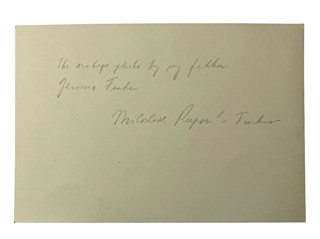 The vintage photo by my father
Jaromír Funke
Miloslava Rupeš - Funková